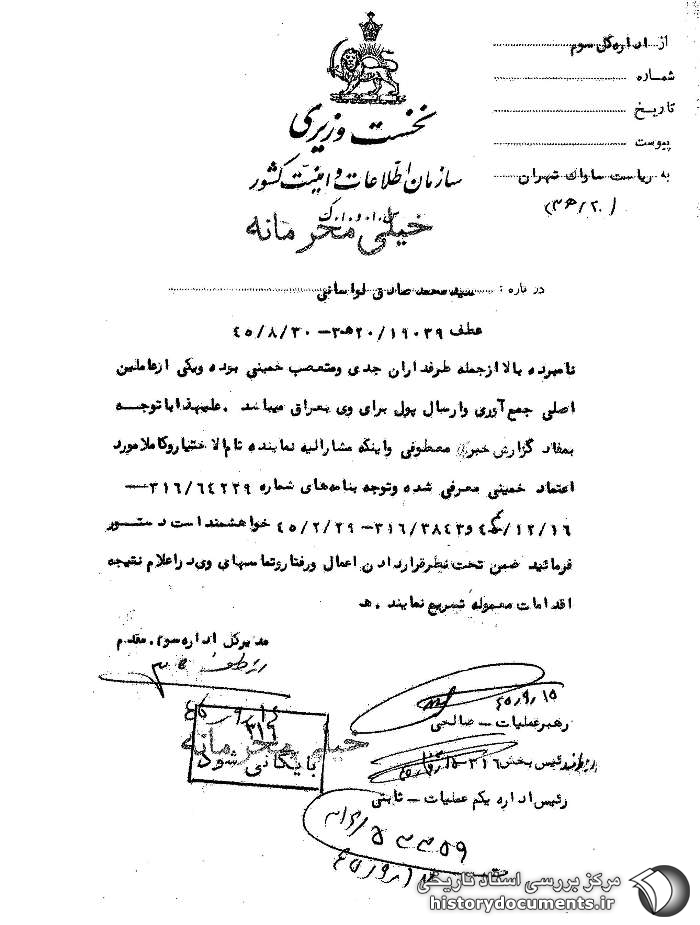 از اداره کل سوم
شماره
تاریخ
پیوست
به ریاست ساواک تهران
(۲۰/ﻫ۳)
نخست وزیری
سازمان اطلاعات و امنیت کشور
س.ا.و.ا.ک
خیلی محرمانه
درباره : سید محمد صادق لواسانی
عطف ۱۹۰۳۹/۲۰ﻫ۳ – ۴۵/۸/۳۰
نامبرده بالا از جمله طرفداران جدی ومتعصب خمینی بوده ویکی از عاملین
اصلی جمع آوری وارسال پول برای وی بعراق میباشد . علیهذا باتوجه
بمفاد گزارش خبری معطوفی واینکه مشارالیه نماینده تام الاختیار وکاملا مورد
اعتماد خمینی معرفی شده وتوجه بنامه‌های شماره ۳۱۶/۶۴۲۲۹ –
/۱۲/۱۶ و ۳۱۶/۳۸۴۳ – ۴۵/۲/۲۹ خواهشمند است دستور
فرمائید ضمن تحت نظر قراردادن اعمال ورفتار وتماسهای وی در اعلام نتیجه
اقدامات معموله تسریع نمایند . ﻫ
مدیر کل اداره سوم . مقدم
۴۵/۹/۱۵
رهبر عملیات – صالحی
رئیس بخش ۳۱۶ –
رئیس اداره یکم عملیات – ثابتی
۴۵/۹/۱۶
۳۱۶
خیلی محرمانه
بایگانی شود
۳۱۶/۵۳۳۵۹
مرکز بررسی اسناد تاریخی
historydocuments.ir